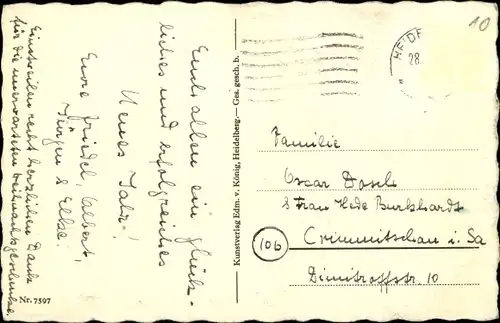 10
HEIDE
28.
Euch allen ein glück-
liches und erfolgreiches
Neues Jahr!
Eure Friedel, Albert,
Jürgen & Elke.
Einstweilen recht herzlichen Dank
für die unerwarteten Weihnachtsgeschenke.
Nr. 7597
Kunstverlag Edm. v. König, Heidelberg.— Ges. gesch. b.
Familie
Oscar Dosch
& Frau Hede Burkhardt
(10b) Crimmitschau i. Sa
Dimitroffstr. 10